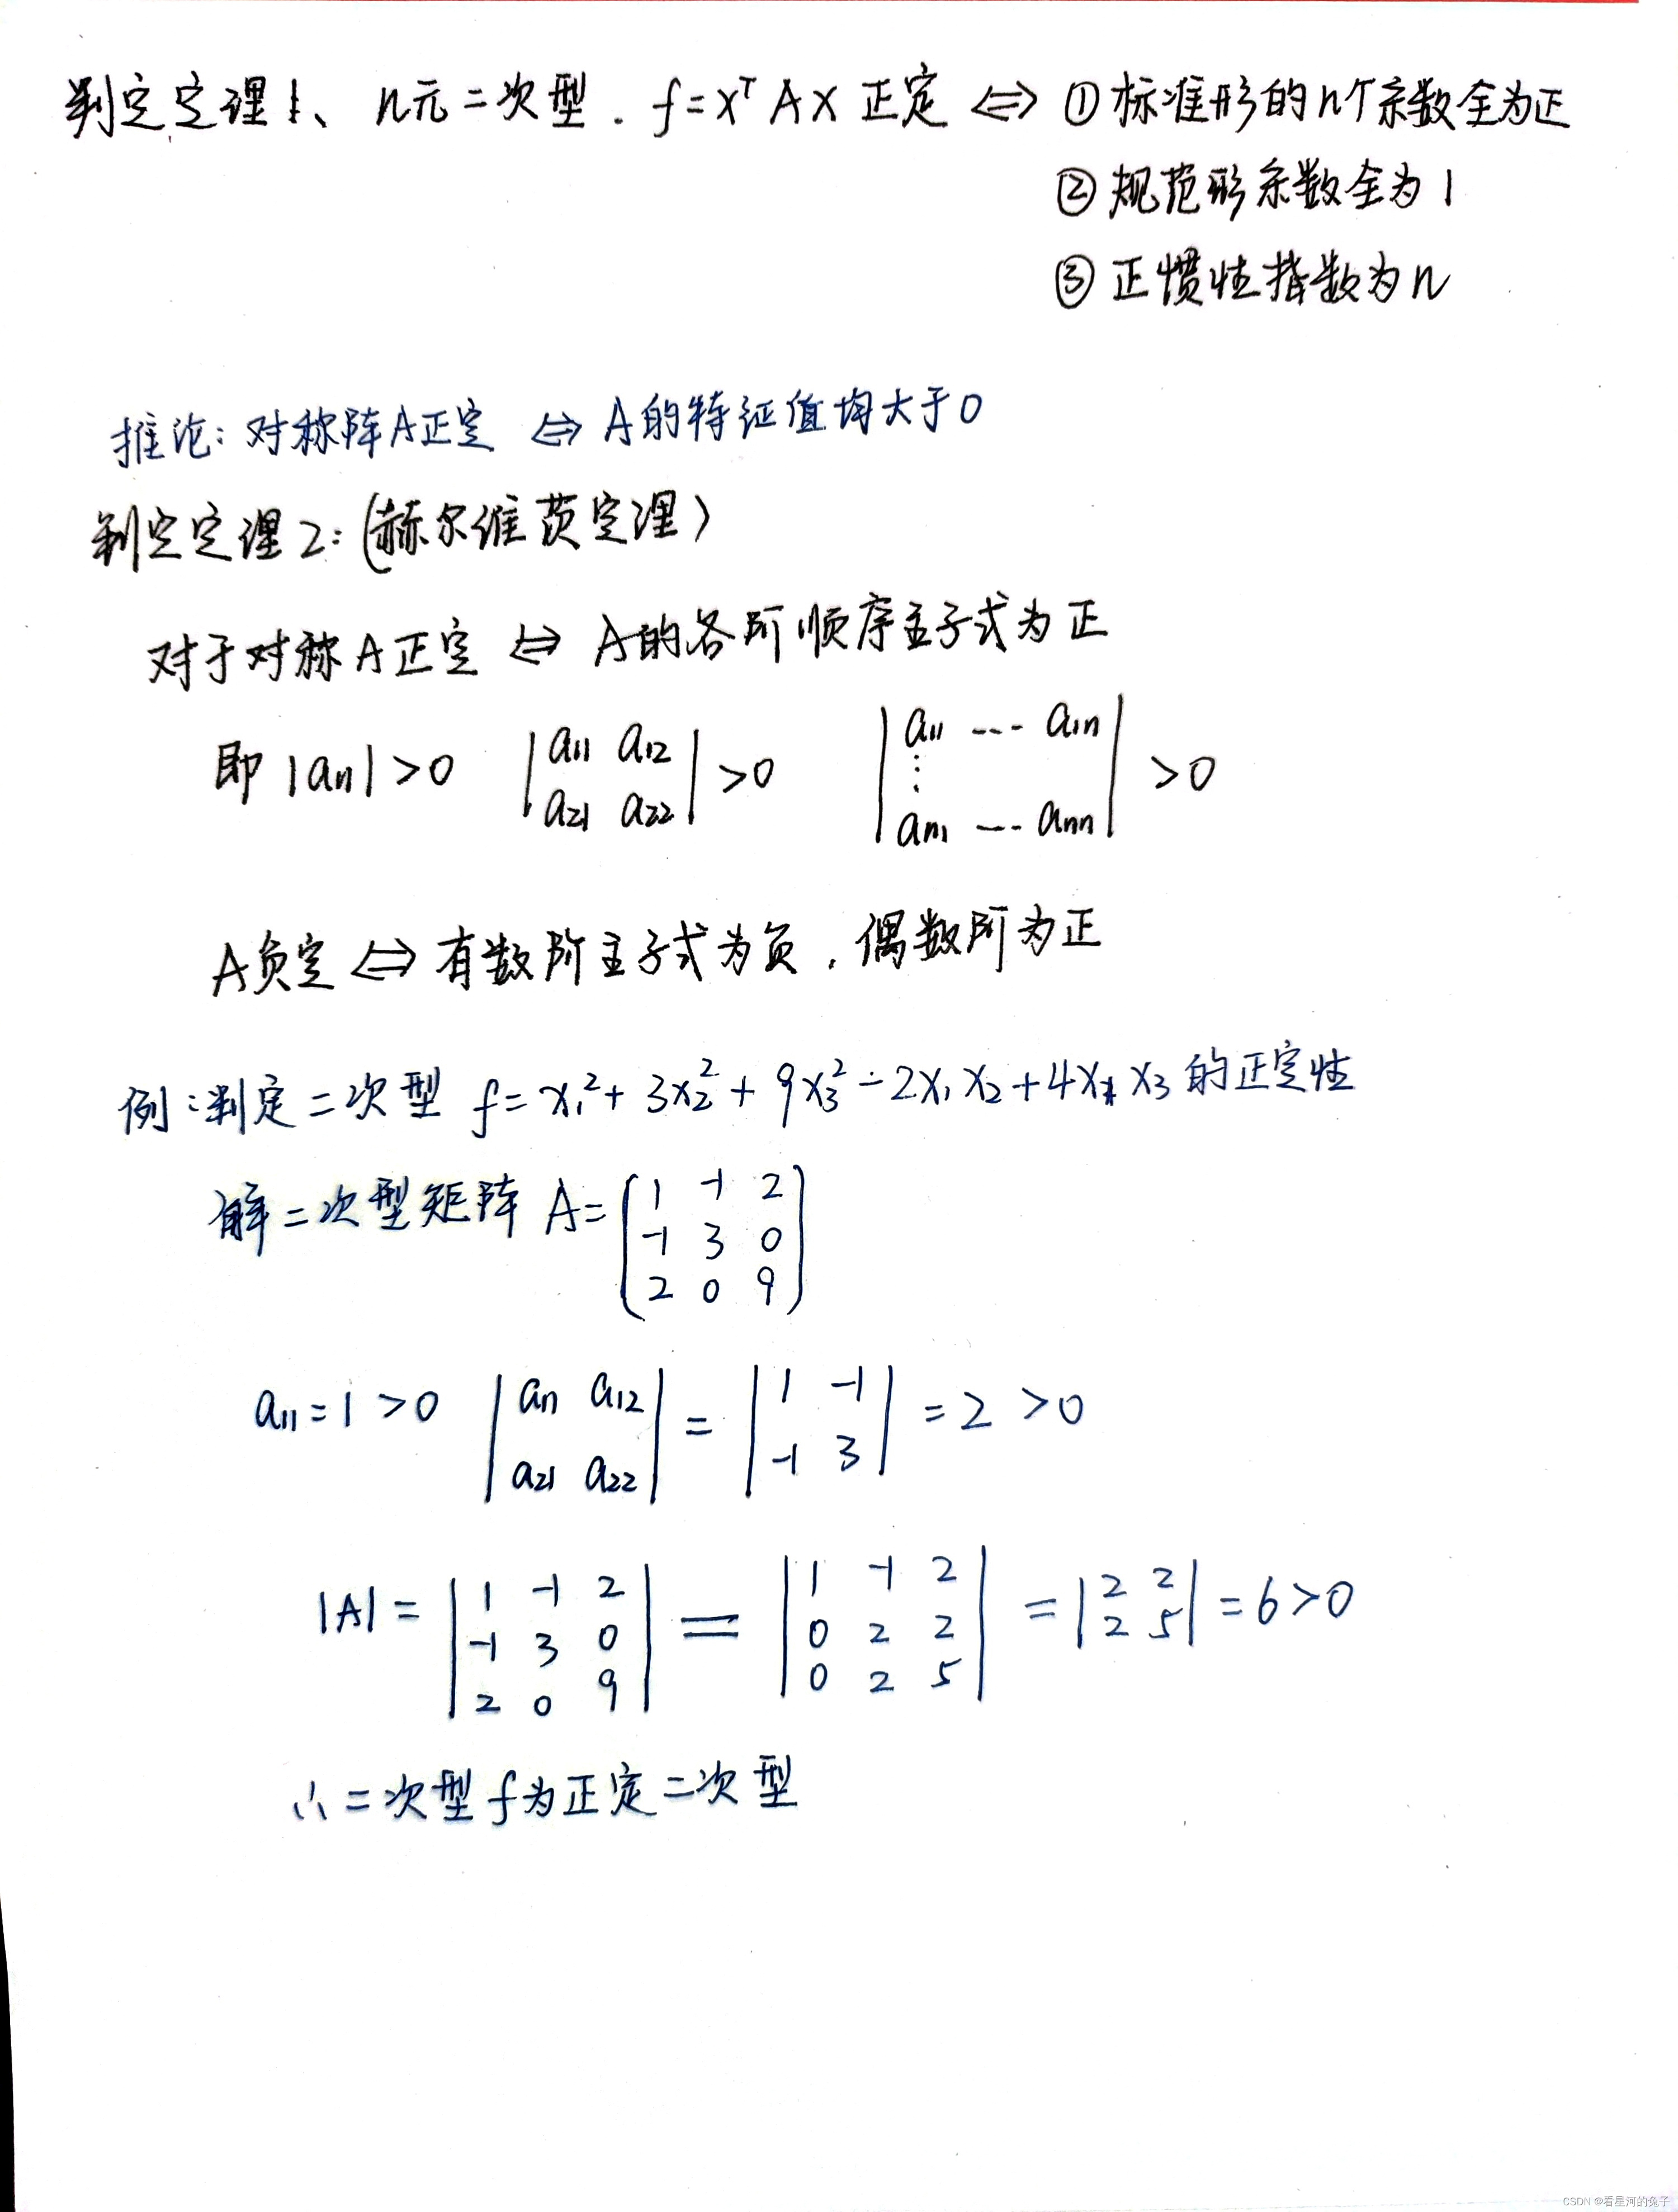 判定定理1、 n元二次型. f=xᵀAx 正定 ⇔ ①标准形的n个系数全为正
②规范形系数全为1
③正惯性指数为n
推论: 对称阵A正定 ⇔ A的特征值均大于0
判定定理2: (赫尔维茨定理)
对于对称A正定 ⇔ A的各阶顺序主子式为正
即 |a₁₁| >0 |a₁₁ a₁₂; a₂₁ a₂₂| >0 |a₁₁ --- a₁ₙ; ⋮; aₙ₁ --- aₙₙ| >0
A负定 ⇔ 有数阶主子式为负, 偶数阶为正
例: 判定二次型 f= x₁²+ 3x₂² + 9x₃² - 2x₁x₂ + 4x₁x₃ 的正定性
解 二次型矩阵 A= (1 -1 2; -1 3 0; 2 0 9)
a₁₁=1 >0 |a₁₁ a₁₂; a₂₁ a₂₂| = |1 -1; -1 3| = 2 >0
|A| = |1 -1 2; -1 3 0; 2 0 9| = |1 -1 2; 0 2 2; 0 2 5| = |2 2; 2 5| = 6>0
∴ 二次型f为正定二次型
CSDN @看星河的兔子